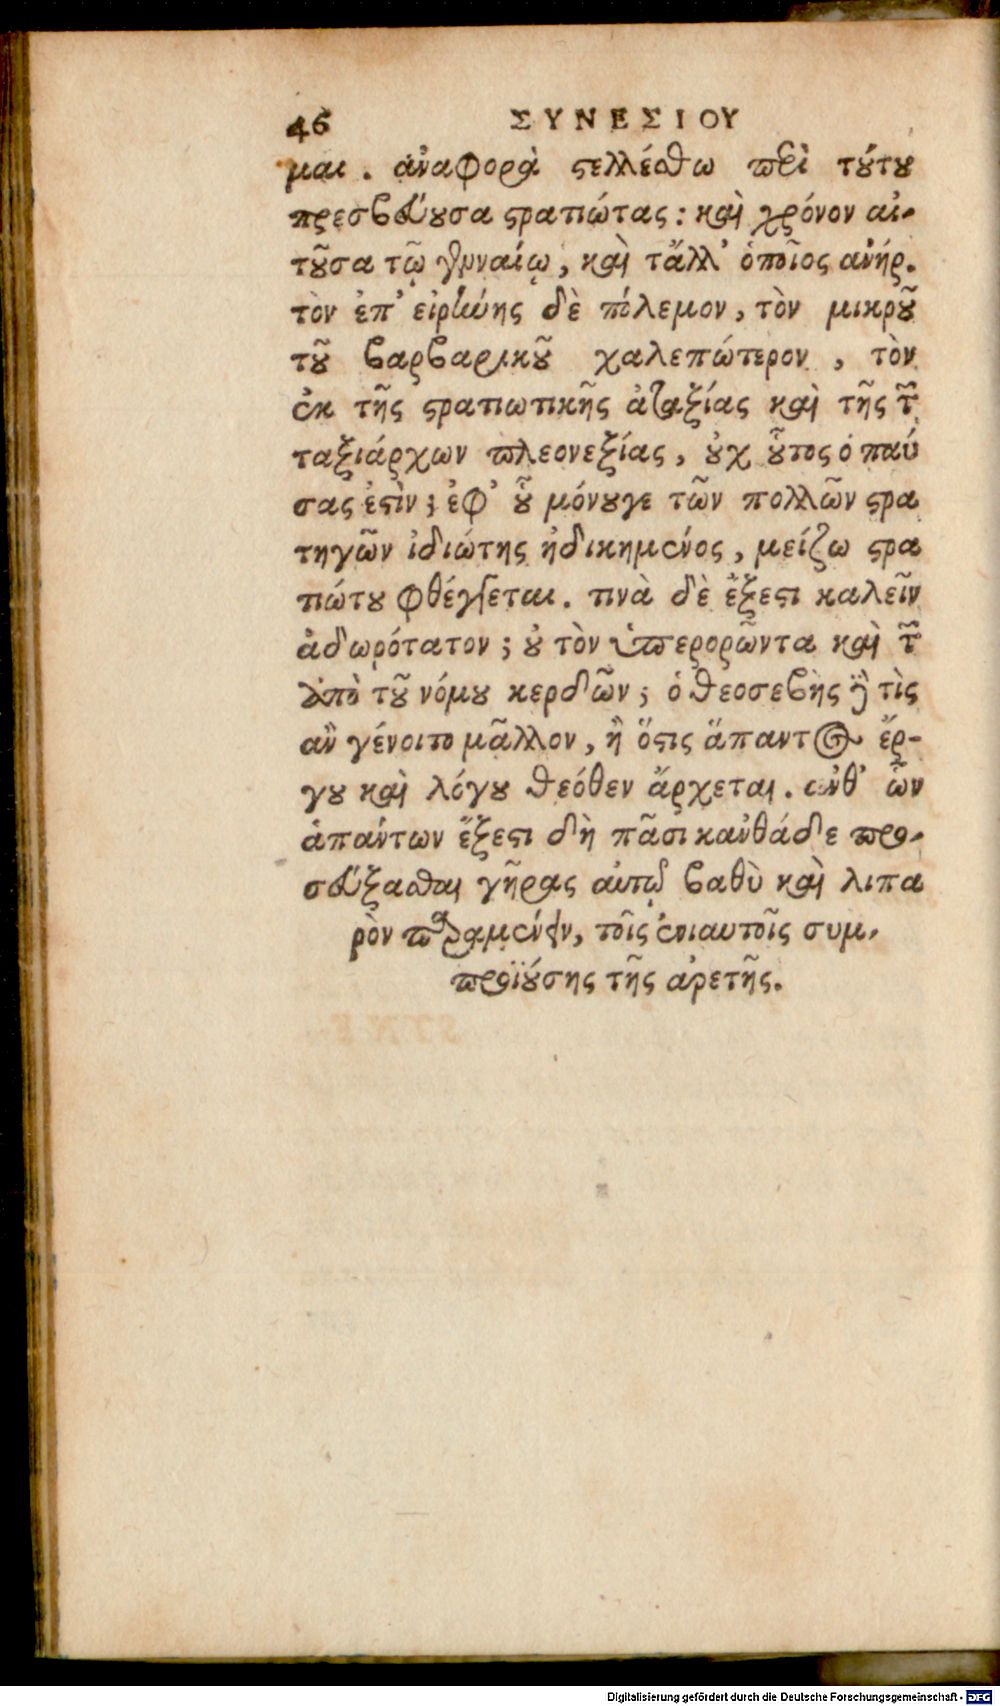 46 ΣΥΝΕΣΙΟΥ
μαι. ἀναφορὰ στελλέσθω περὶ τούτου
πρεσβεύουσα στρατιώτας: καὶ χρόνον αἰ-
τοῦσα τῷ γενναίῳ, καὶ τἄλλ’ ὁποῖος ἀνήρ.
τὸν ἐπ’ εἰρήνης δὲ πόλεμον, τὸν μικροῦ
τοῦ βαρβαρικοῦ χαλεπώτερον, τὸν
ἐκ τῆς στρατιωτικῆς ἀταξίας καὶ τῆς τῶν
ταξιάρχων πλεονεξίας, οὐχ οὗτος ὁ παύ
σας ἐστὶν; ἐφ’ οὗ μόνου γε τῶν πολλῶν στρα
τηγῶν ἰδιώτης ἠδικημένος, μείζω στρα
τιώτου φθέγξεται. τινὰ δὲ ἔξεστι καλεῖν
ἀδωρότατον; οὐ τὸν ὑπερορῶντα καὶ τῶν
ἀπὸ τοῦ νόμου κερδῶν; ὁ θεοσεβὴς δὲ τὶς
ἂν γένοιτο μᾶλλον, ἢ ὅστις ἅπαντος ἔρ-
γου καὶ λόγου θεόθεν ἄρχεται. ἀνθ’ ὧν
ἁπάντων ἔξεστι δὴ πᾶσι κἀνθάδε προ-
σεύξασθαι γῆρας αὐτῷ βαθὺ καὶ λιπα
ρὸν παραμένειν, τοῖς ἐνιαυτοῖς συμ-
προϊούσης τῆς ἀρετῆς.
Digitalisierung gefördert durch die Deutsche Forschungsgemeinschaft - DFG